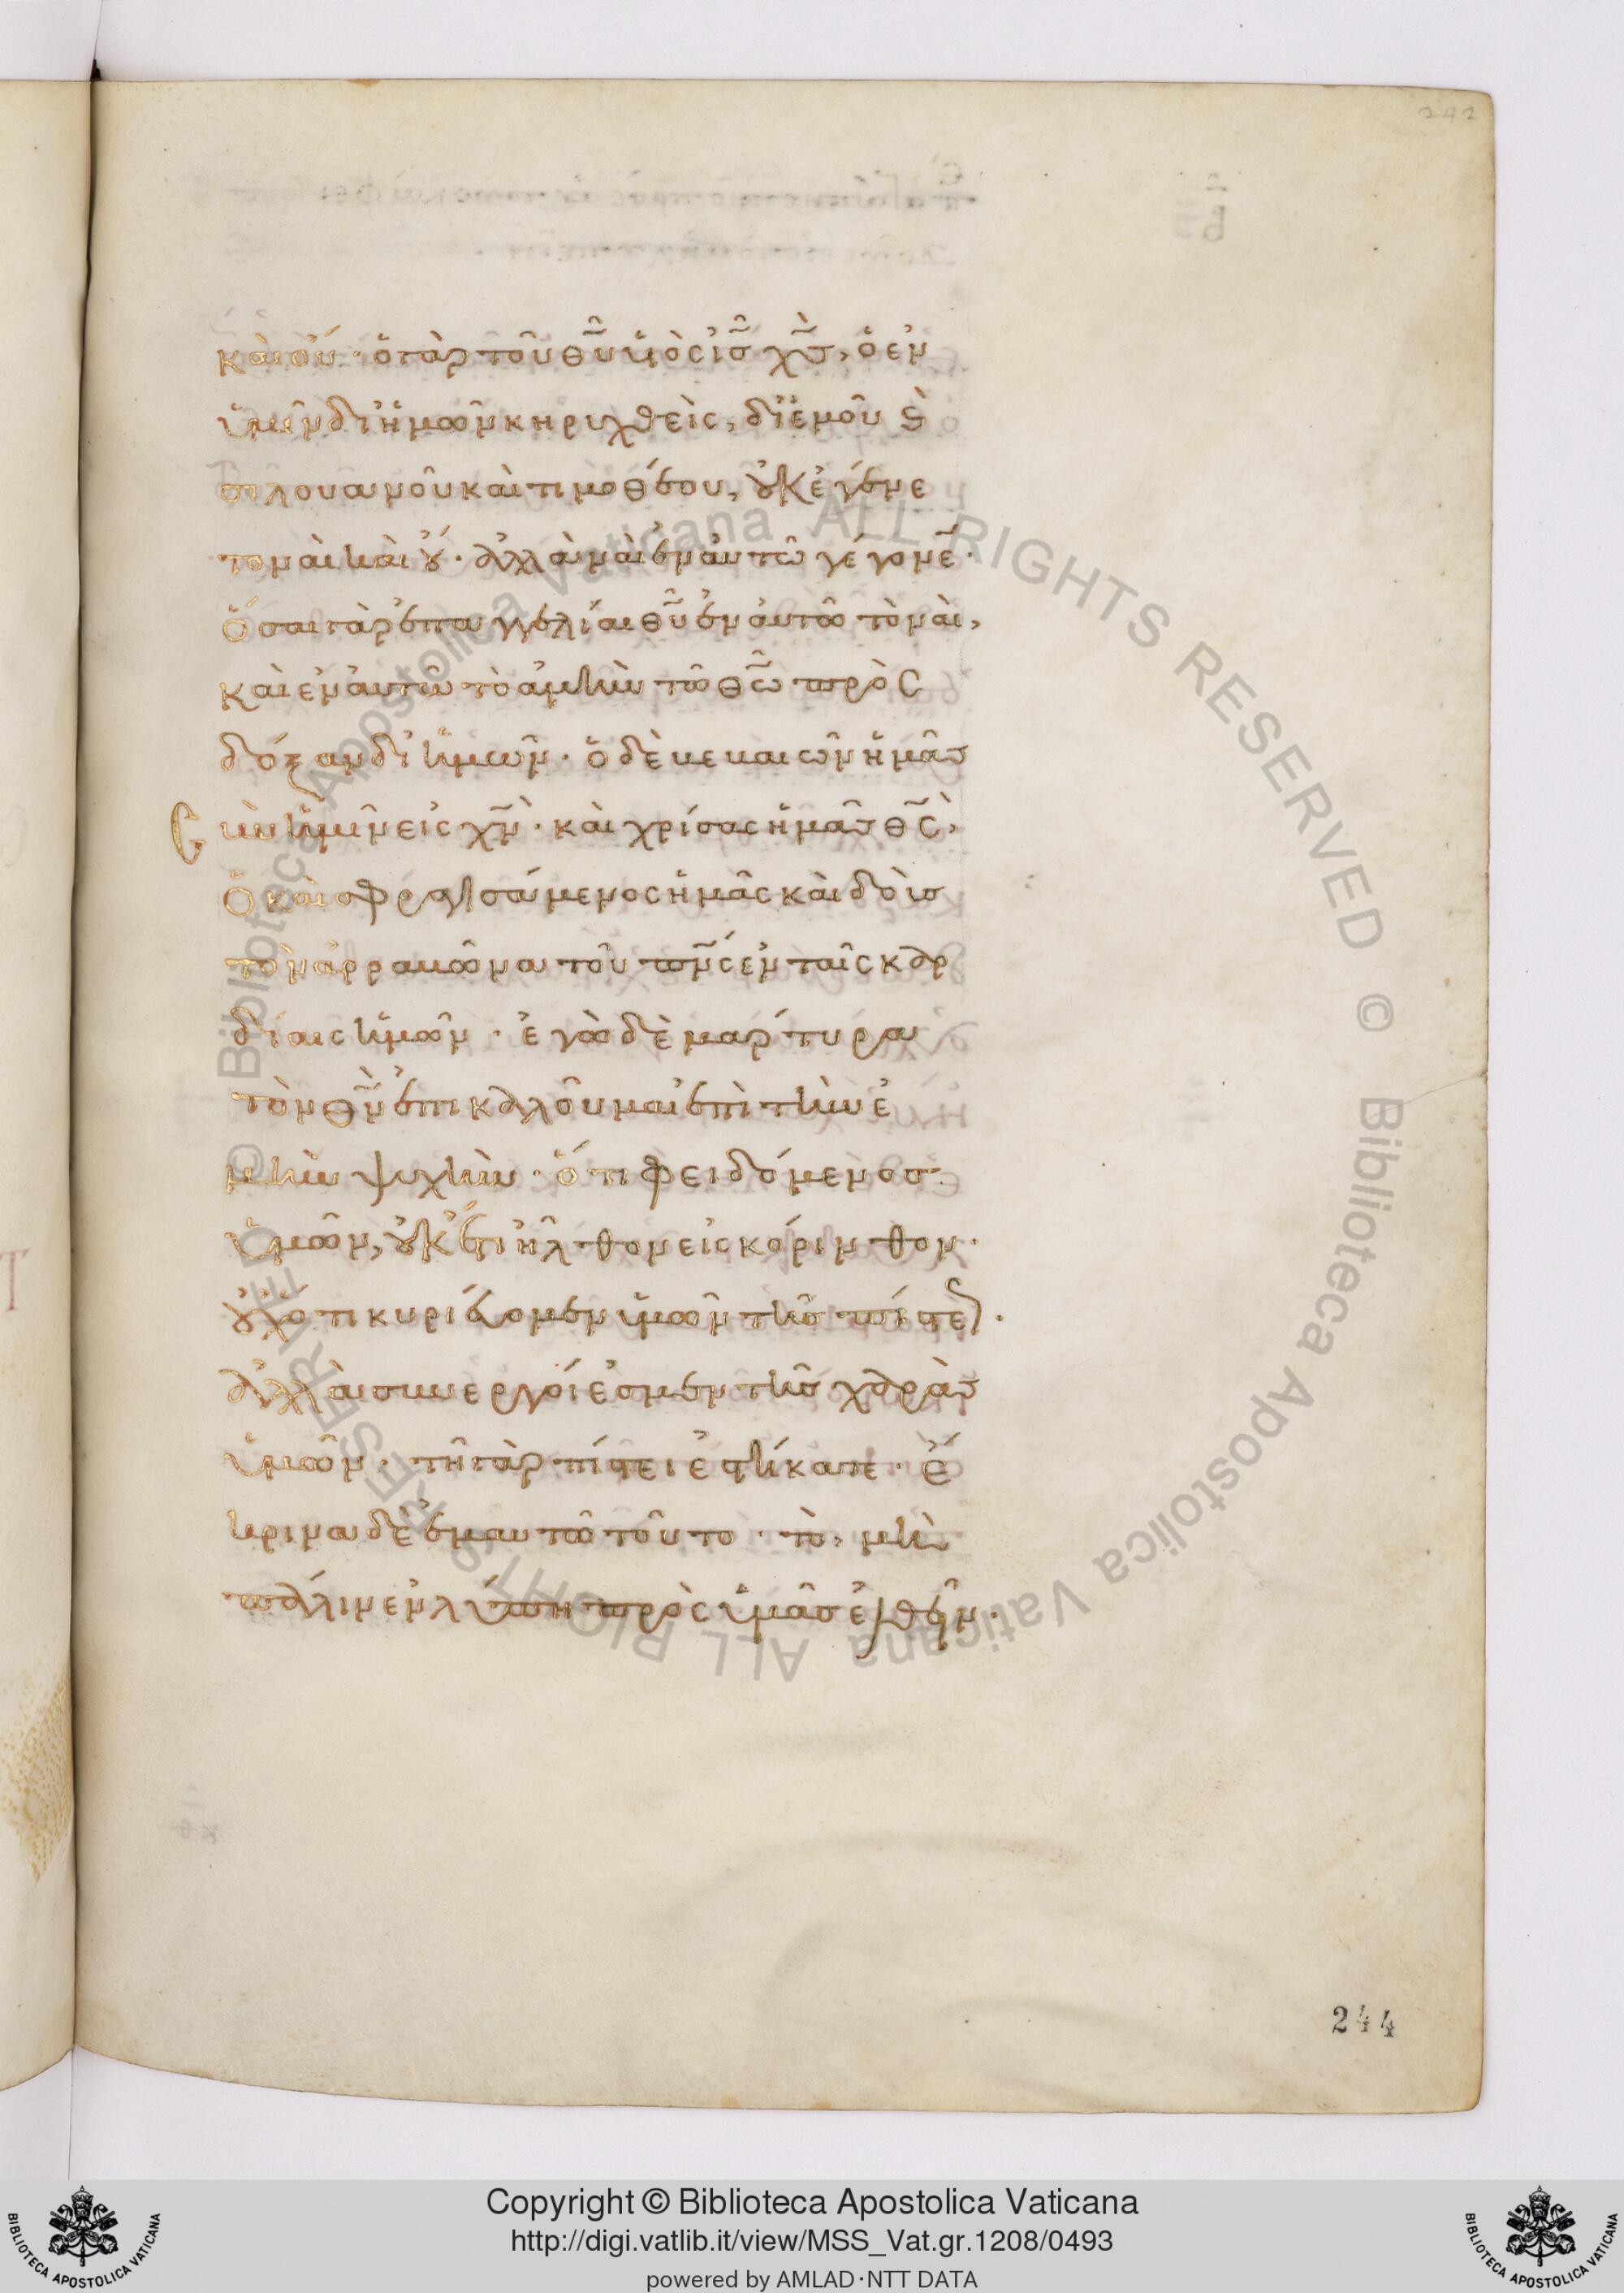 242
καὶ οὔ· ὁ γὰρ τοῦ θῦ υἱὸς ἰς χς, ὁ ἐν
ὑμῖν δι ἡμῶν κηρυχθεὶς, δι ἐμοῦ ϗ
σιλουανοῦ καὶ τιμοθέου, οὐκ ἐγένε
το ναὶ καὶ οὔ· ἀλλὰ ναὶ ἐν αὐτῶ γέγονε·
ὅσαι γὰρ ἐπαγγελίαι θῦ ἐν αὐτῶ τὸ ναὶ,
καὶ ἐν αὐτῶ τὸ ἀμὴν τῶ θῶ πρὸς
δόξαν δι ἡμῶν· ὁ δὲ βεβαιῶν ἡμᾶς
σὺν ὑμῖν εἰς χν· καὶ χρίσας ἡμᾶς θς,
ὁ καὶ σφραγισάμενος ἡμᾶς καὶ δοὺς
τὸν ἀρραβῶνα τοῦ πνς ἐν ταῖς καρ
δίαις ἡμῶν· ἐγὼ δὲ μάρτυρα
τὸν θν ἐπικαλοῦμαι ἐπὶ τὴν ἐ
μὴν ψυχὴν· ὅτι φειδόμενος
ὑμῶν, οὐκ ἔτι ἦλθον εἰς κόρινθον·
οὐχ ὅτι κυριεύομεν ὑμῶν τῆς πίστεως·
ἀλλὰ συνεργοί ἐσμεν τῆς χαρᾶς
ὑμῶν· τῆ γὰρ πίστει ἑστήκατε· ἔ
κρινα δὲ ἐμαυτῶ τοῦτο· τὸ, μὴ
πάλιν ἐν λύπη πρὸς ὑμᾶς ἐλθεῖν·
244
© Biblioteca Apostolica Vaticana ALL RIGHTS RESERVED © Biblioteca Apostolica Vaticana ALL RIGHTS RESERVED
Copyright © Biblioteca Apostolica Vaticana
http://digi.vatlib.it/view/MSS_Vat.gr.1208/0493
powered by AMLAD·NTT DATA
BIBLIOTECA APOSTOLICA VATICANA
BIBLIOTECA APOSTOLICA VATICANA